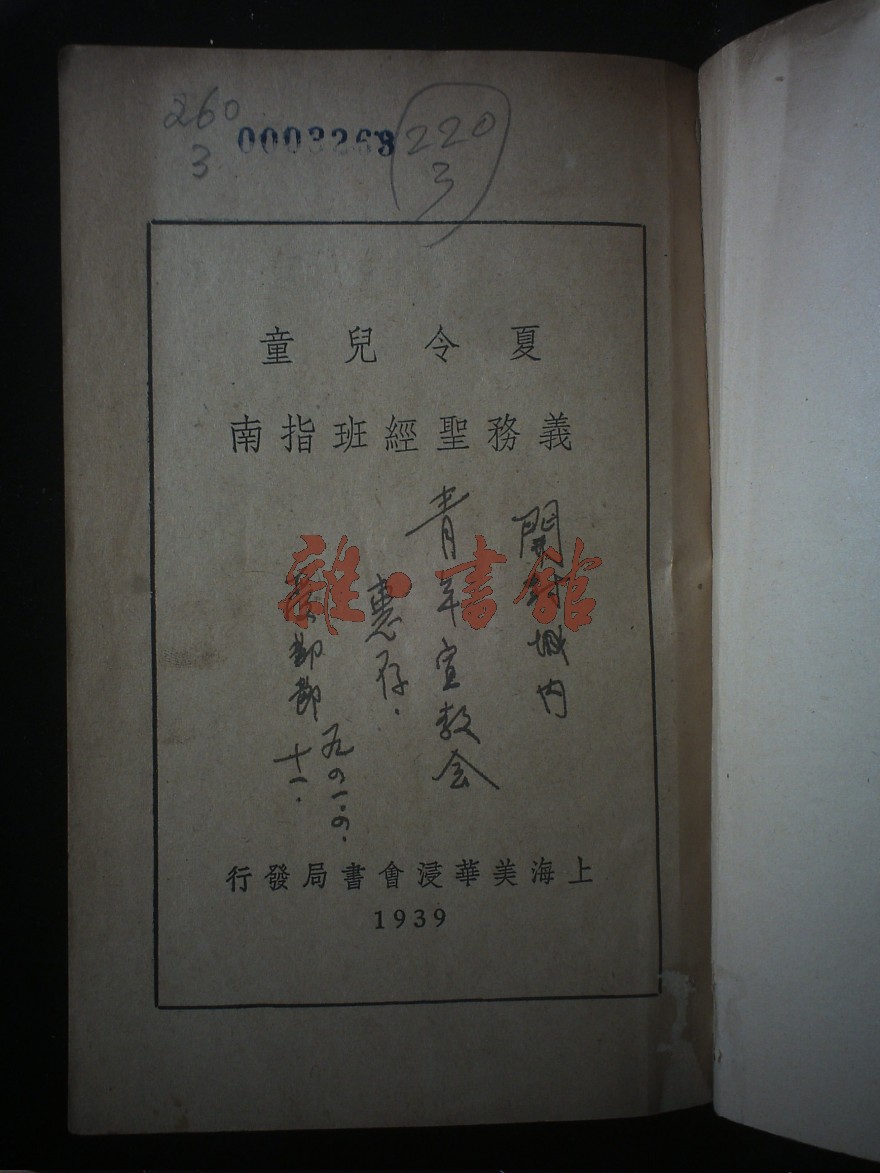 260
3
0003268
220
3
夏令兒童
義務聖經班指南
開封城内
青年宣教会
惠存.
鄭
九四一.四.
十一.
上海美華浸會書局發行
1939
雜·書館